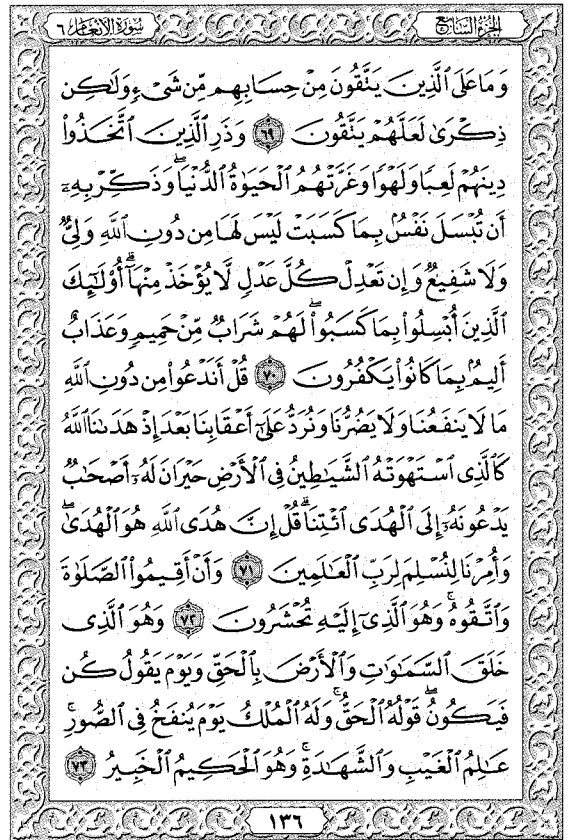 الجزء السابع
سورة الأنعام ٦
وَمَا عَلَى ٱلَّذِينَ يَتَّقُونَ مِنْ حِسَابِهِم مِّن شَىْءٍ وَلَٰكِن
ذِكْرَىٰ لَعَلَّهُمْ يَتَّقُونَ ٦٩ وَذَرِ ٱلَّذِينَ ٱتَّخَذُوا۟
دِينَهُمْ لَعِبًا وَلَهْوًا وَغَرَّتْهُمُ ٱلْحَيَوٰةُ ٱلدُّنْيَا ۚ وَذَكِّرْ بِهِۦٓ
أَن تُبْسَلَ نَفْسٌۢ بِمَا كَسَبَتْ لَيْسَ لَهَا مِن دُونِ ٱللَّهِ وَلِىٌّ
وَلَا شَفِيعٌ وَإِن تَعْدِلْ كُلَّ عَدْلٍ لَّا يُؤْخَذْ مِنْهَآ ۗ أُو۟لَٰٓئِكَ
ٱلَّذِينَ أُبْسِلُوا۟ بِمَا كَسَبُوا۟ ۖ لَهُمْ شَرَابٌ مِّنْ حَمِيمٍ وَعَذَابٌ
أَلِيمٌۢ بِمَا كَانُوا۟ يَكْفُرُونَ ٧٠ قُلْ أَنَدْعُوا۟ مِن دُونِ ٱللَّهِ
مَا لَا يَنفَعُنَا وَلَا يَضُرُّنَا وَنُرَدُّ عَلَىٰٓ أَعْقَابِنَا بَعْدَ إِذْ هَدَىٰنَا ٱللَّهُ
كَٱلَّذِى ٱسْتَهْوَتْهُ ٱلشَّيَٰطِينُ فِى ٱلْأَرْضِ حَيْرَانَ لَهُۥٓ أَصْحَٰبٌ
يَدْعُونَهُۥٓ إِلَى ٱلْهُدَى ٱئْتِنَا ۗ قُلْ إِنَّ هُدَى ٱللَّهِ هُوَ ٱلْهُدَىٰ ۖ
وَأُمِرْنَا لِنُسْلِمَ لِرَبِّ ٱلْعَٰلَمِينَ ٧١ وَأَنْ أَقِيمُوا۟ ٱلصَّلَوٰةَ
وَٱتَّقُوهُ ۚ وَهُوَ ٱلَّذِىٓ إِلَيْهِ تُحْشَرُونَ ٧٢ وَهُوَ ٱلَّذِى
خَلَقَ ٱلسَّمَٰوَٰتِ وَٱلْأَرْضَ بِٱلْحَقِّ وَيَوْمَ يَقُولُ كُن
فَيَكُونُ ۖ قَوْلُهُ ٱلْحَقُّ ۚ وَلَهُ ٱلْمُلْكُ يَوْمَ يُنفَخُ فِى ٱلصُّورِ ۚ
عَٰلِمُ ٱلْغَيْبِ وَٱلشَّهَٰدَةِ ۚ وَهُوَ ٱلْحَكِيمُ ٱلْخَبِيرُ ٧٣
١٣٦